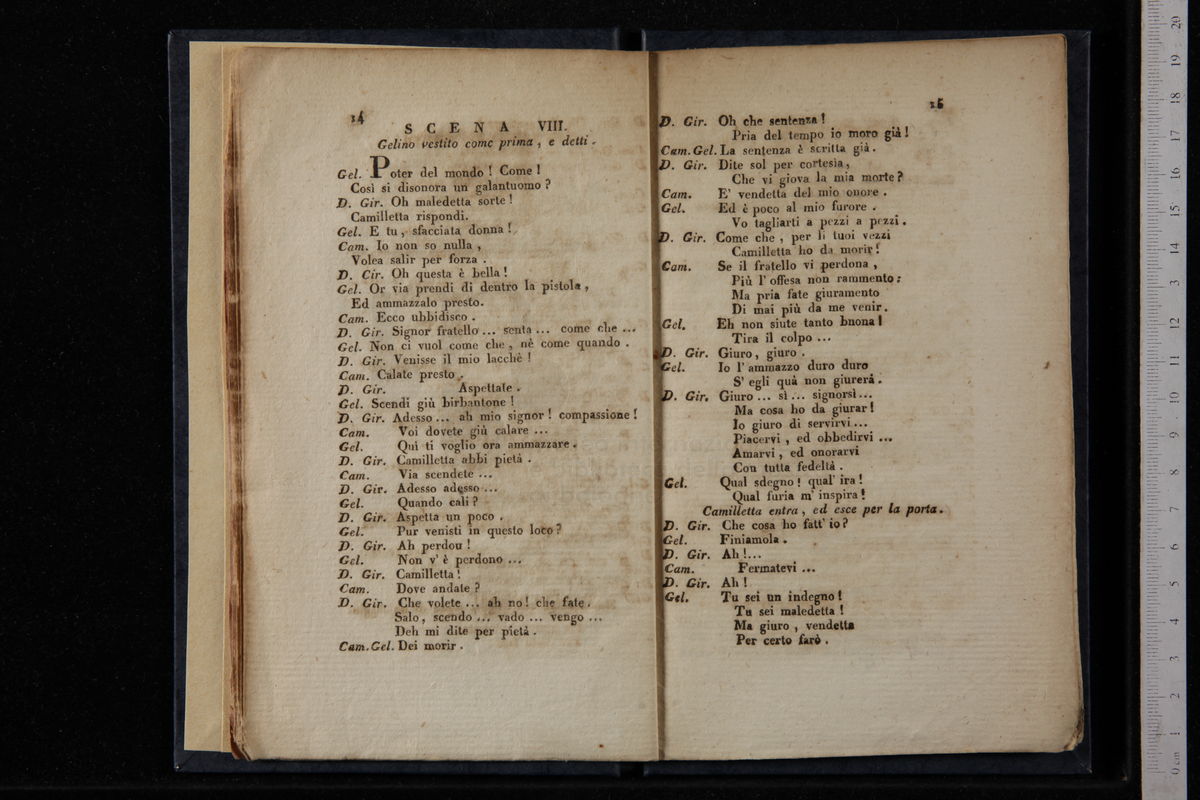 14
SCENA VIII.
Gelino vestito come prima, e detti.
Gel. Poter del mondo! Come!
Così si disonora un galantuomo?
D. Gir. Oh maledetta sorte!
Camilletta rispondi.
Gel. E tu, sfacciata donna!
Cam. Io non so nulla,
Volea salir per forza.
D. Cir. Oh questa è bella!
Gel. Or via prendi di dentro la pistola,
Ed ammazzalo presto.
Cam. Ecco ubbidisco.
D. Gir. Signor fratello... senta... come che...
Gel. Non ci vuol come che, nè come quando.
D. Gir. Venisse il mio lacchè!
Cam. Calate presto.
D. Gir. Aspettate.
Gel. Scendi giù birbantone!
D. Gir. Adesso... ah mio signor! compassione!
Cam. Voi dovete giù calare...
Gel. Quì ti voglio ora ammazzare.
D. Gir. Camilletta abbi pietà.
Cam. Via scendete...
D. Gir. Adesso adesso...
Gel. Quando cali?
D. Gir. Aspetta un poco.
Gel. Pur venisti in questo loco?
D. Gir. Ah perdon!
Gel. Non v'è perdono...
D. Gir. Camilletta!
Cam. Dove andate?
D. Gir. Che volete... ah no! che fate.
Salo, scendo... vado... vengo...
Deh mi dite per pietà.
Cam. Gel. Dei morir.
15
D. Gir. Oh che sentenza!
Pria del tempo io moro già!
Cam. Gel. La sentenza è scritta già.
D. Gir. Dite sol per cortesia,
Che vi giova la mia morte?
Cam. E' vendetta del mio onore.
Gel. Ed è poco al mio furore.
Vo tagliarti a pezzi a pezzi.
D. Gir. Come che, per li tuoi vezzi
Camilletta ho da morir!
Cam. Se il fratello vi perdona,
Più l'offesa non rammento;
Ma pria fate giuramento
Di mai più da me venir.
Gel. Eh non siute tanto bnona!
Tira il colpo...
D. Gir. Giuro, giuro.
Gel. Io l'ammazzo duro duro
S'egli quà non giurerà.
D. Gir. Giuro... sì... signorsì...
Ma cosa ho da giurar!
Io giuro di servirvi...
Piacervi, ed obbedirvi...
Amarvi, ed onorarvi
Con tutta fedeltà.
Gel. Qual sdegno! qual' ira!
Qual furia m'inspira!
Camilletta entra, ed esce per la porta.
D. Gir. Che cosa ho fatt'io?
Gel. Finiamola.
D. Gir. Ah!...
Cam. Fermatevi...
D. Gir. Ah!
Gel. Tu sei un indegno!
Tu sei maledetta!
Ma giuro, vendetta
Per certo farò.
0 cm 1 2 3 4 5 6 7 8 9 10 11 12 13 14 15 16 17 18 19 20